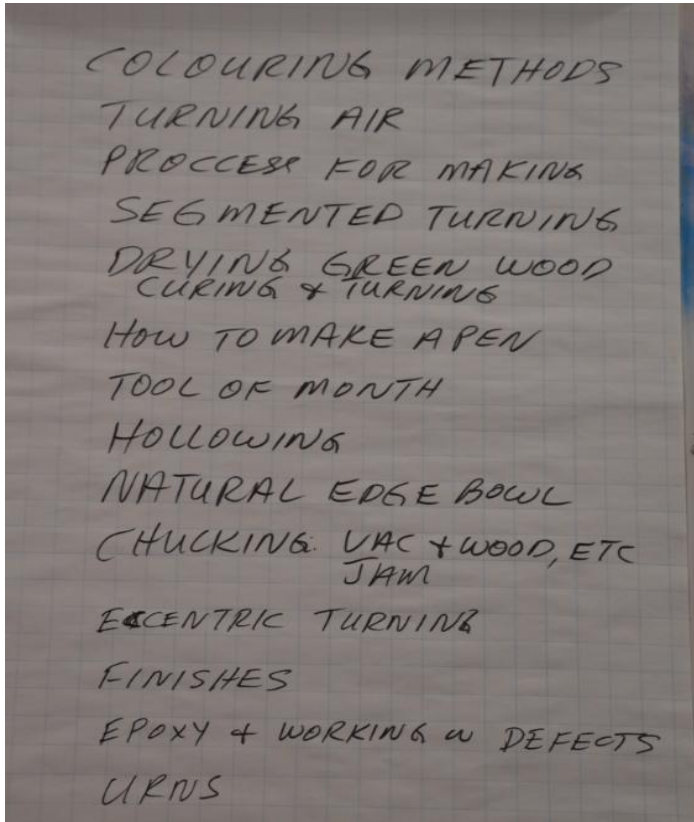 COLOURING METHODS
TURNING AIR
PROCCESS FOR MAKING
SEGMENTED TURNING
DRYING GREEN WOOD
CURING & TURNING
HOW TO MAKE A PEN
TOOL OF MONTH
HOLLOWING
NATURAL EDGE BOWL
CHUCKING: VAC + WOOD, ETC
JAM
ECCENTRIC TURNING
FINISHES
EPOXY + WORKING W DEFECTS
URNS